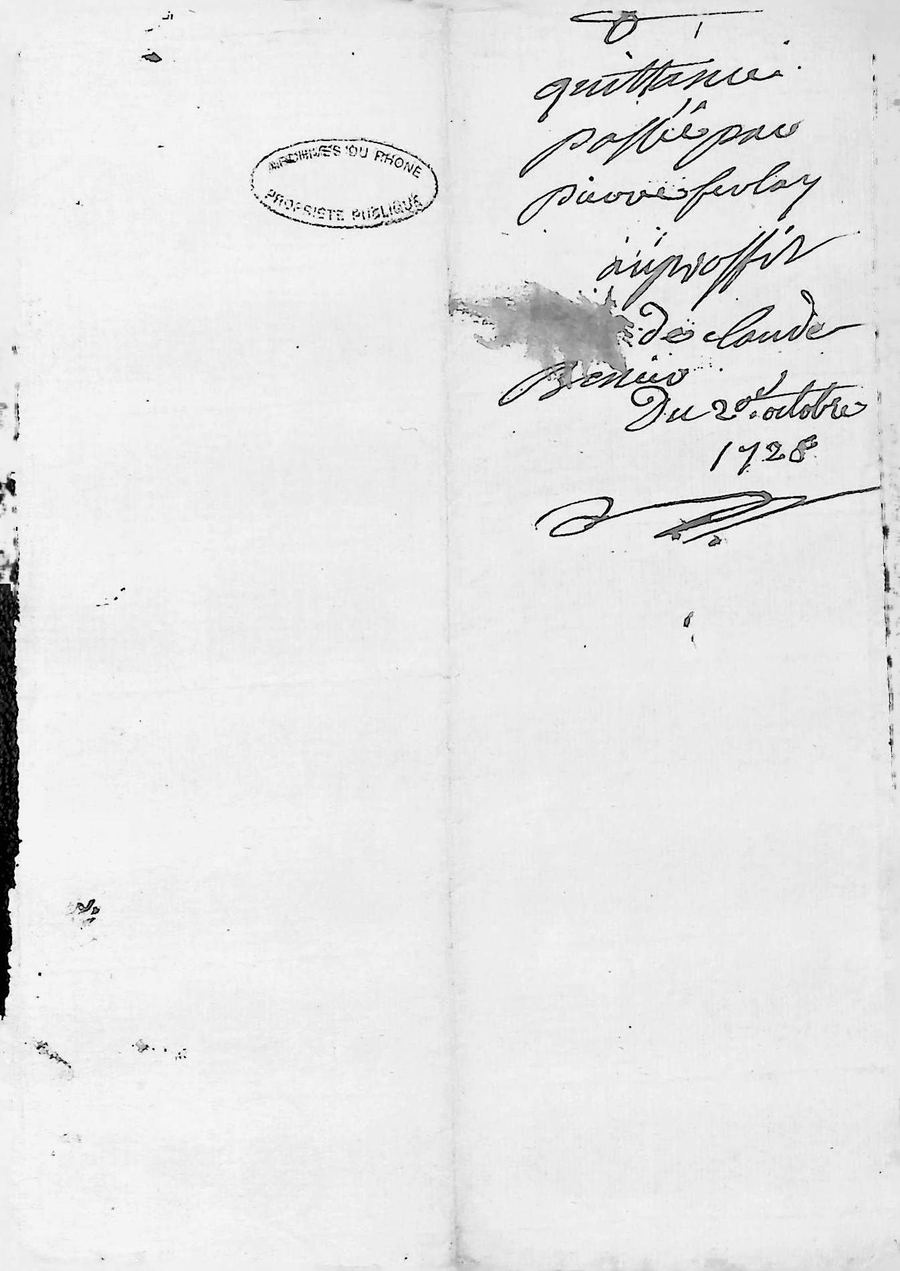 ARCHIVES DU RHONE
PROPRIETE PUBLIQUE
quittance
passée par
pierre ferlay
au proffit
de claude
Du 2e. octobre
1728